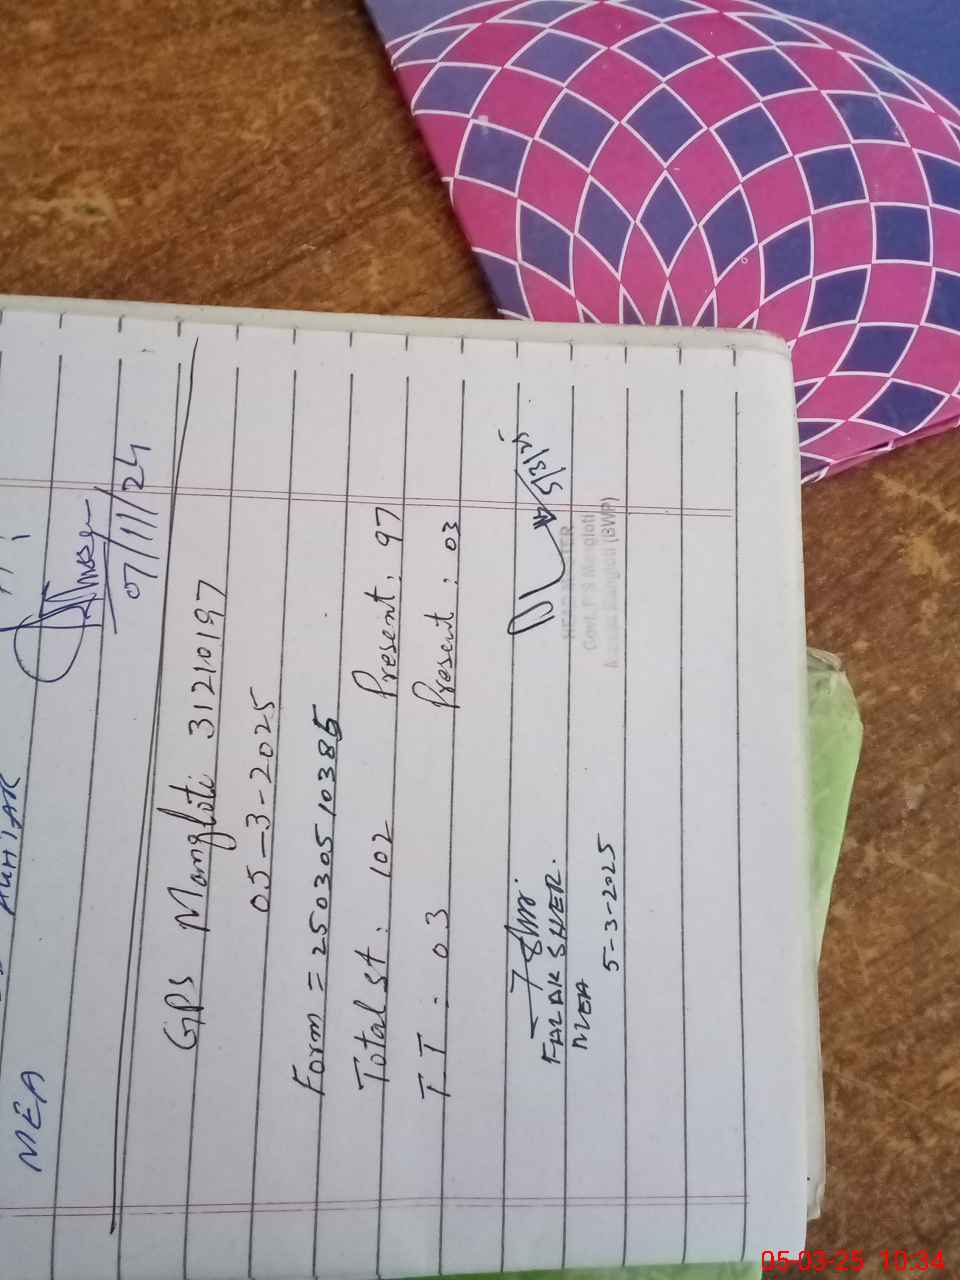 MEA
07/11/24
GPS Mangloti 31210197
05-3-2025
Form = 25030510385
Total st : 102 Present : 97
T T : 03 Present : 03
5/3/25
FALAK SHER.
MEA
5-3-2025
Govt. P/S Mangloti
Mangloti (BWP)
05-03-25 10:34